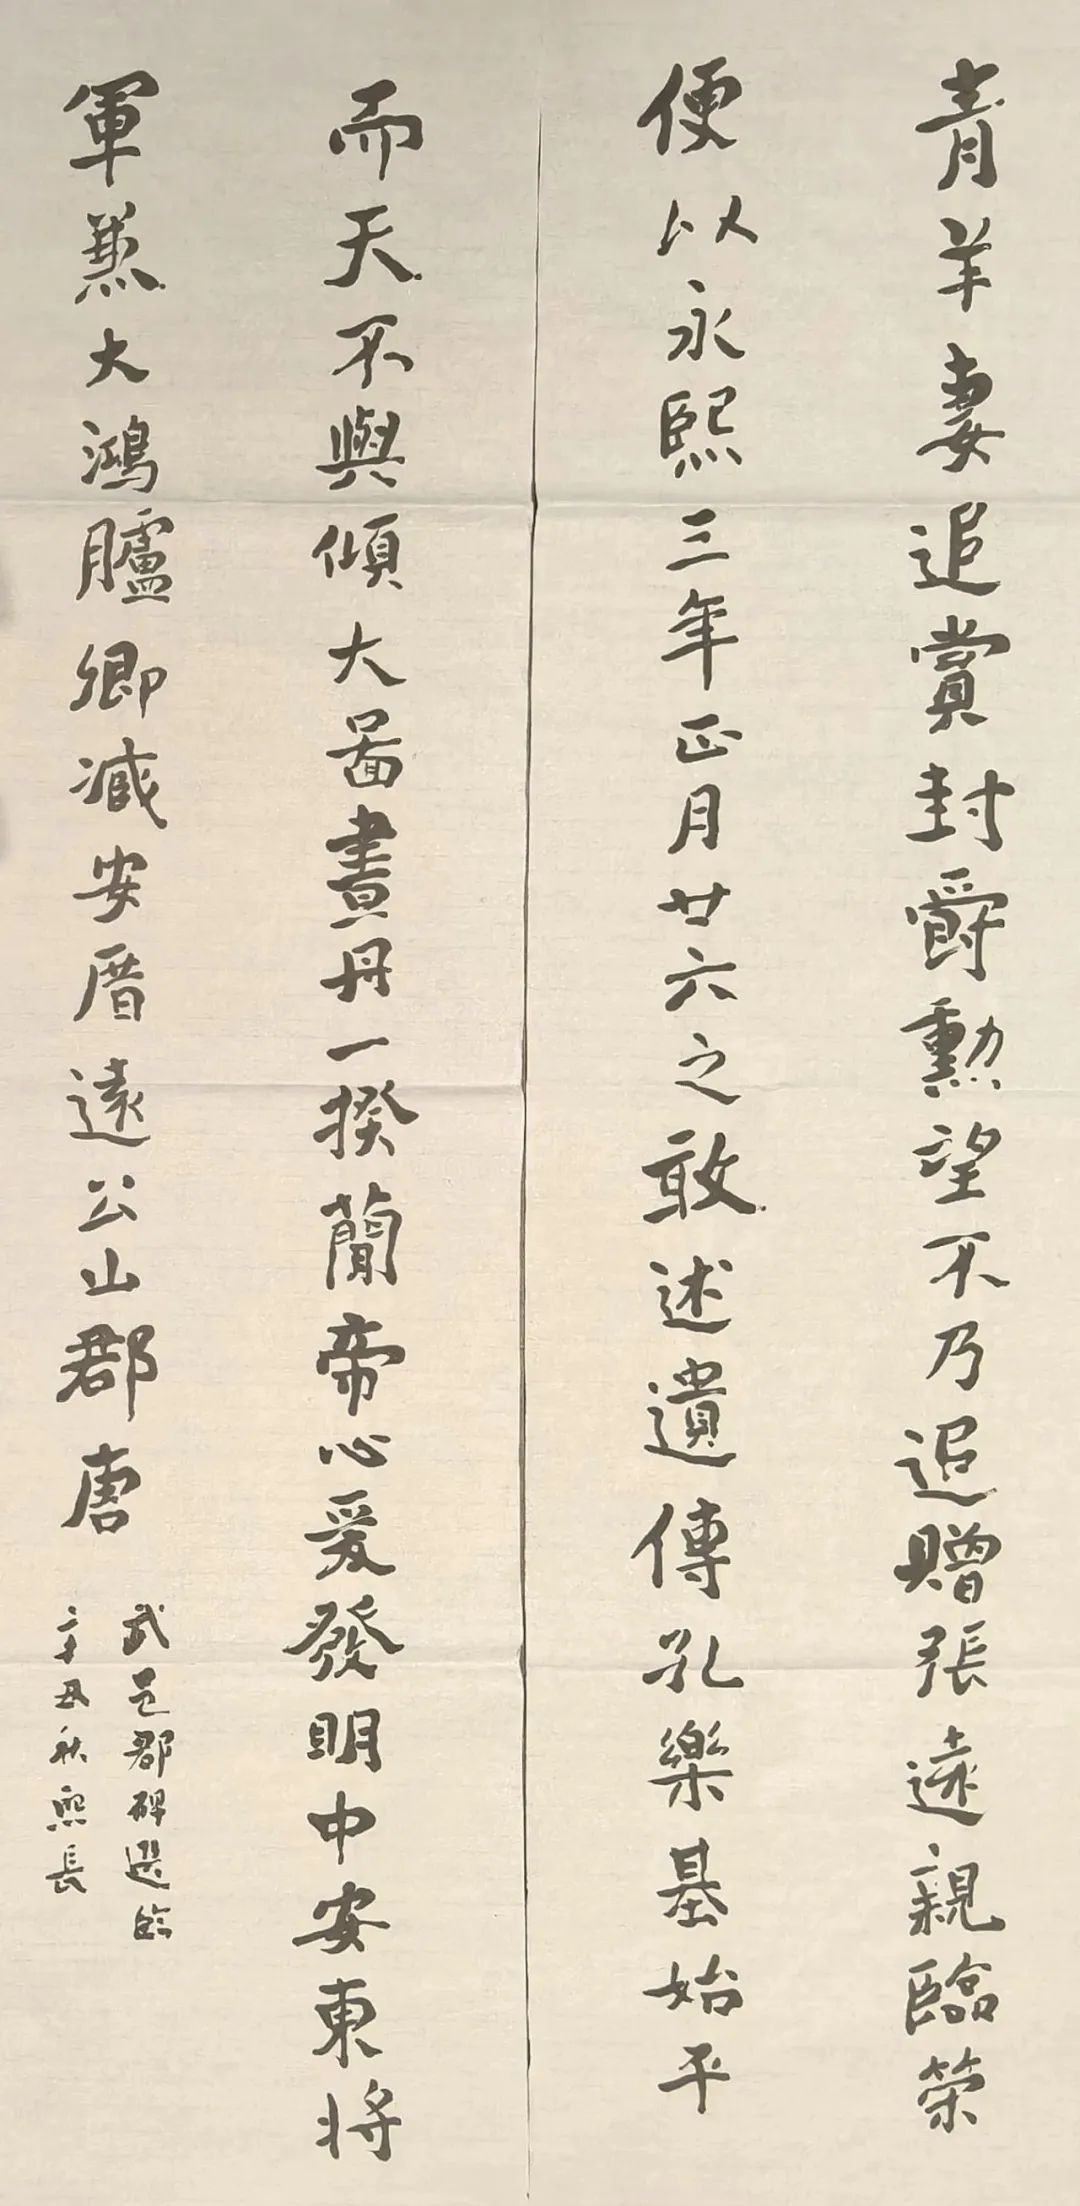 青羊妻追賞封爵勲望不乃追贈張遠親臨榮
便以永熙三年正月廿六之敢述遺傳孔樂基始平
而天不與傾大啚晝丹一揆蘭帝心爰發明中安東將
軍兼大鴻臚卿減安厝遠公山郡唐
武邑郡碑選臨
辛丑秋熙長